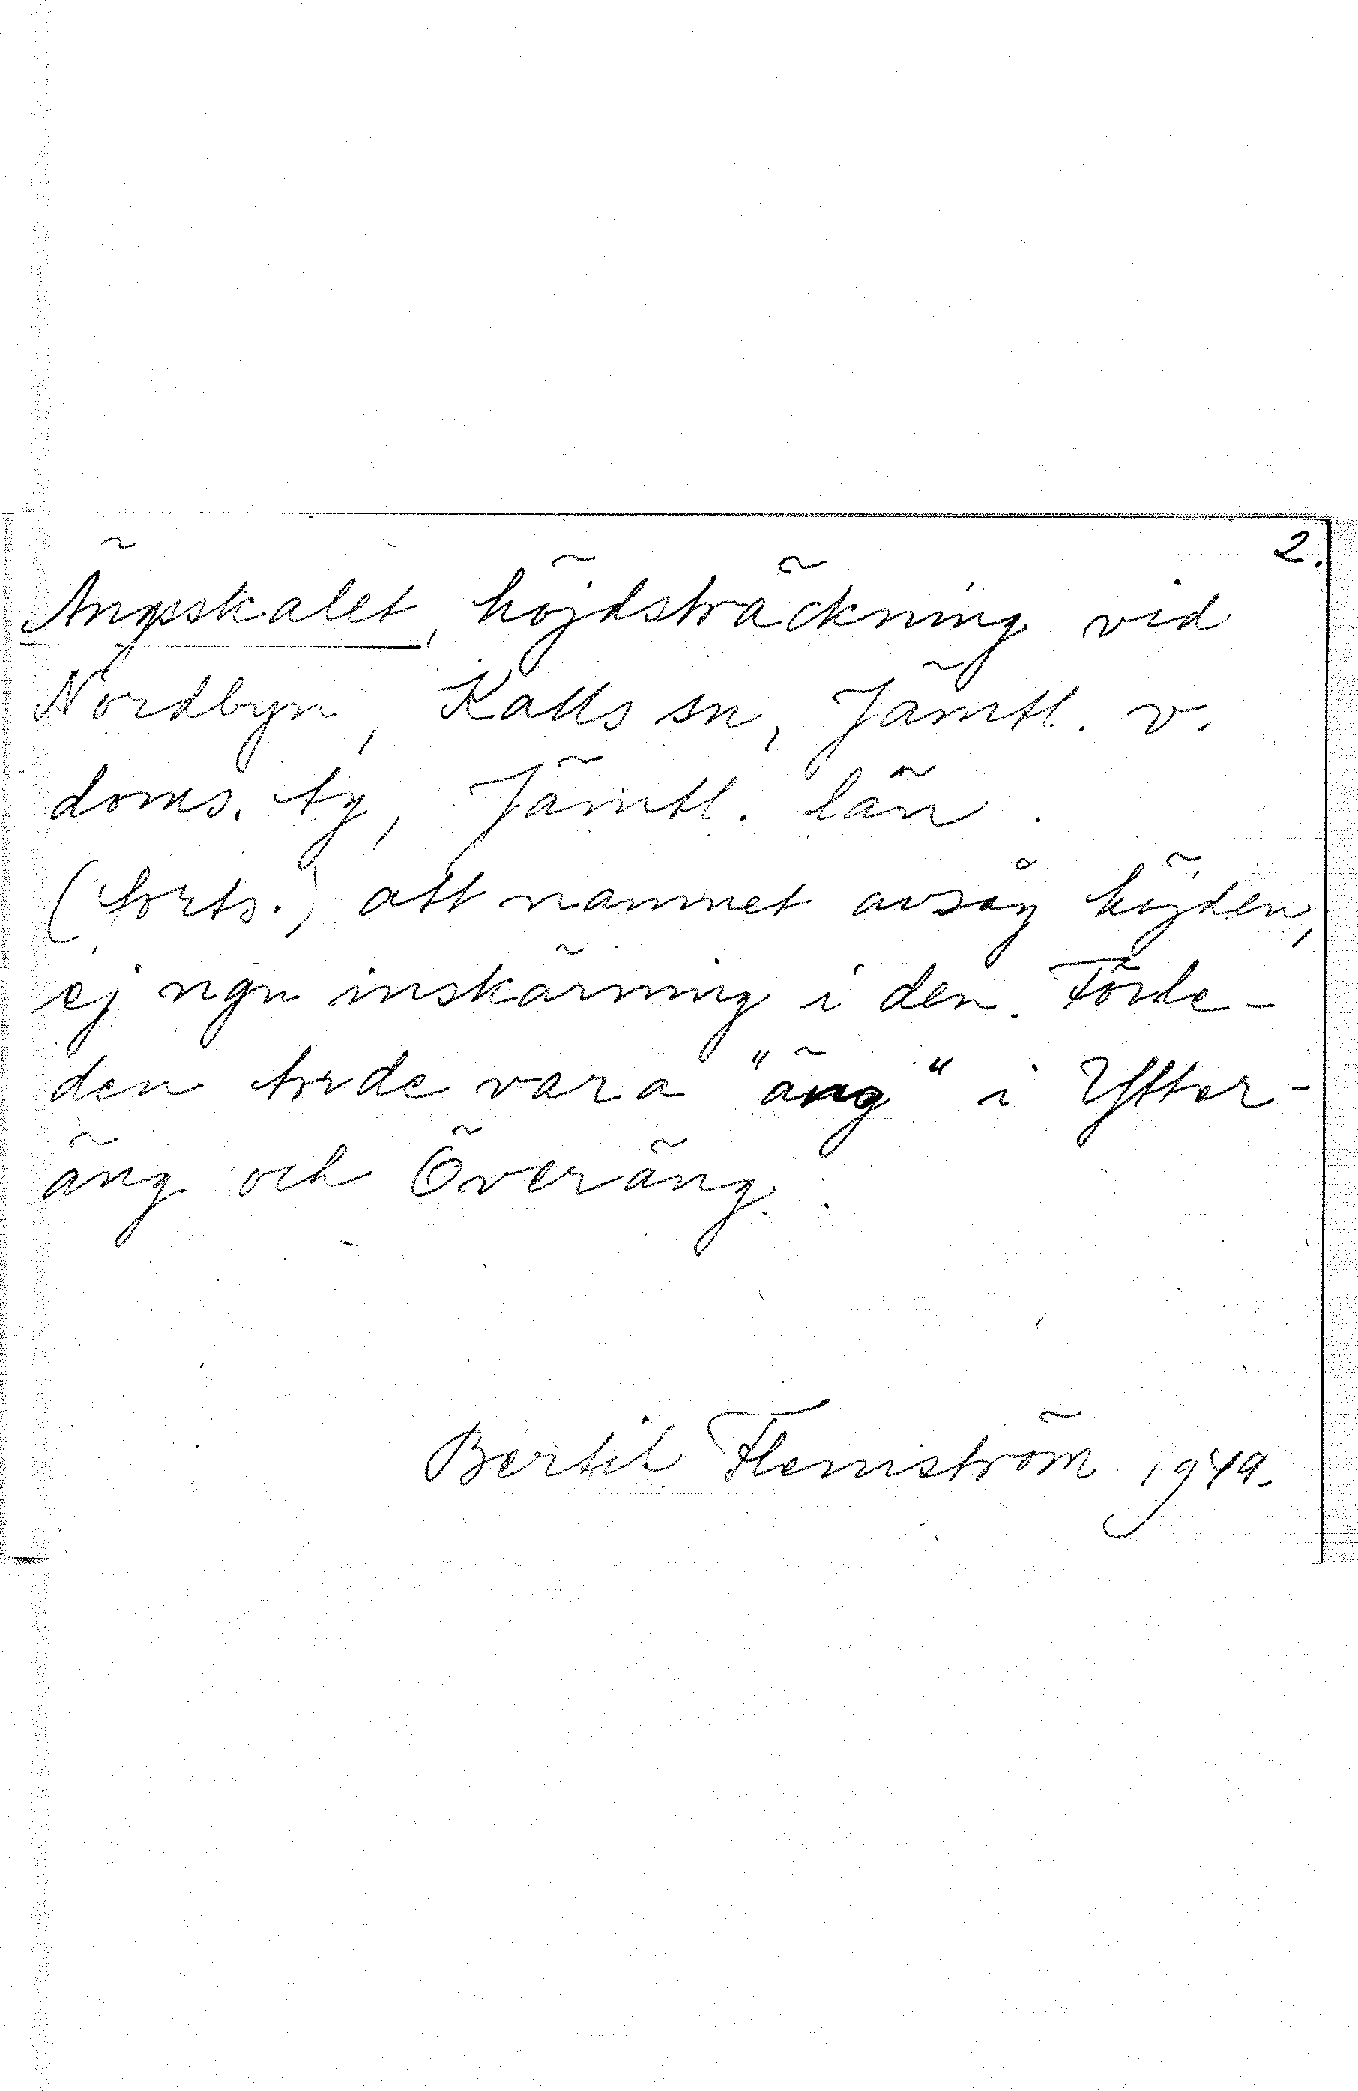 2.
Ängsskalet, höjdsträckning vid
Nordbyn, Kalls sn, Jämtl. v.
doms. tg, Jämtl. län.
(forts.) att namnet avsåg höjden,
ej ngn inskärning i den. Förle-
den torde vara "äng" i Ytter-
äng och Överäng.
Bertil Flemström 1949.